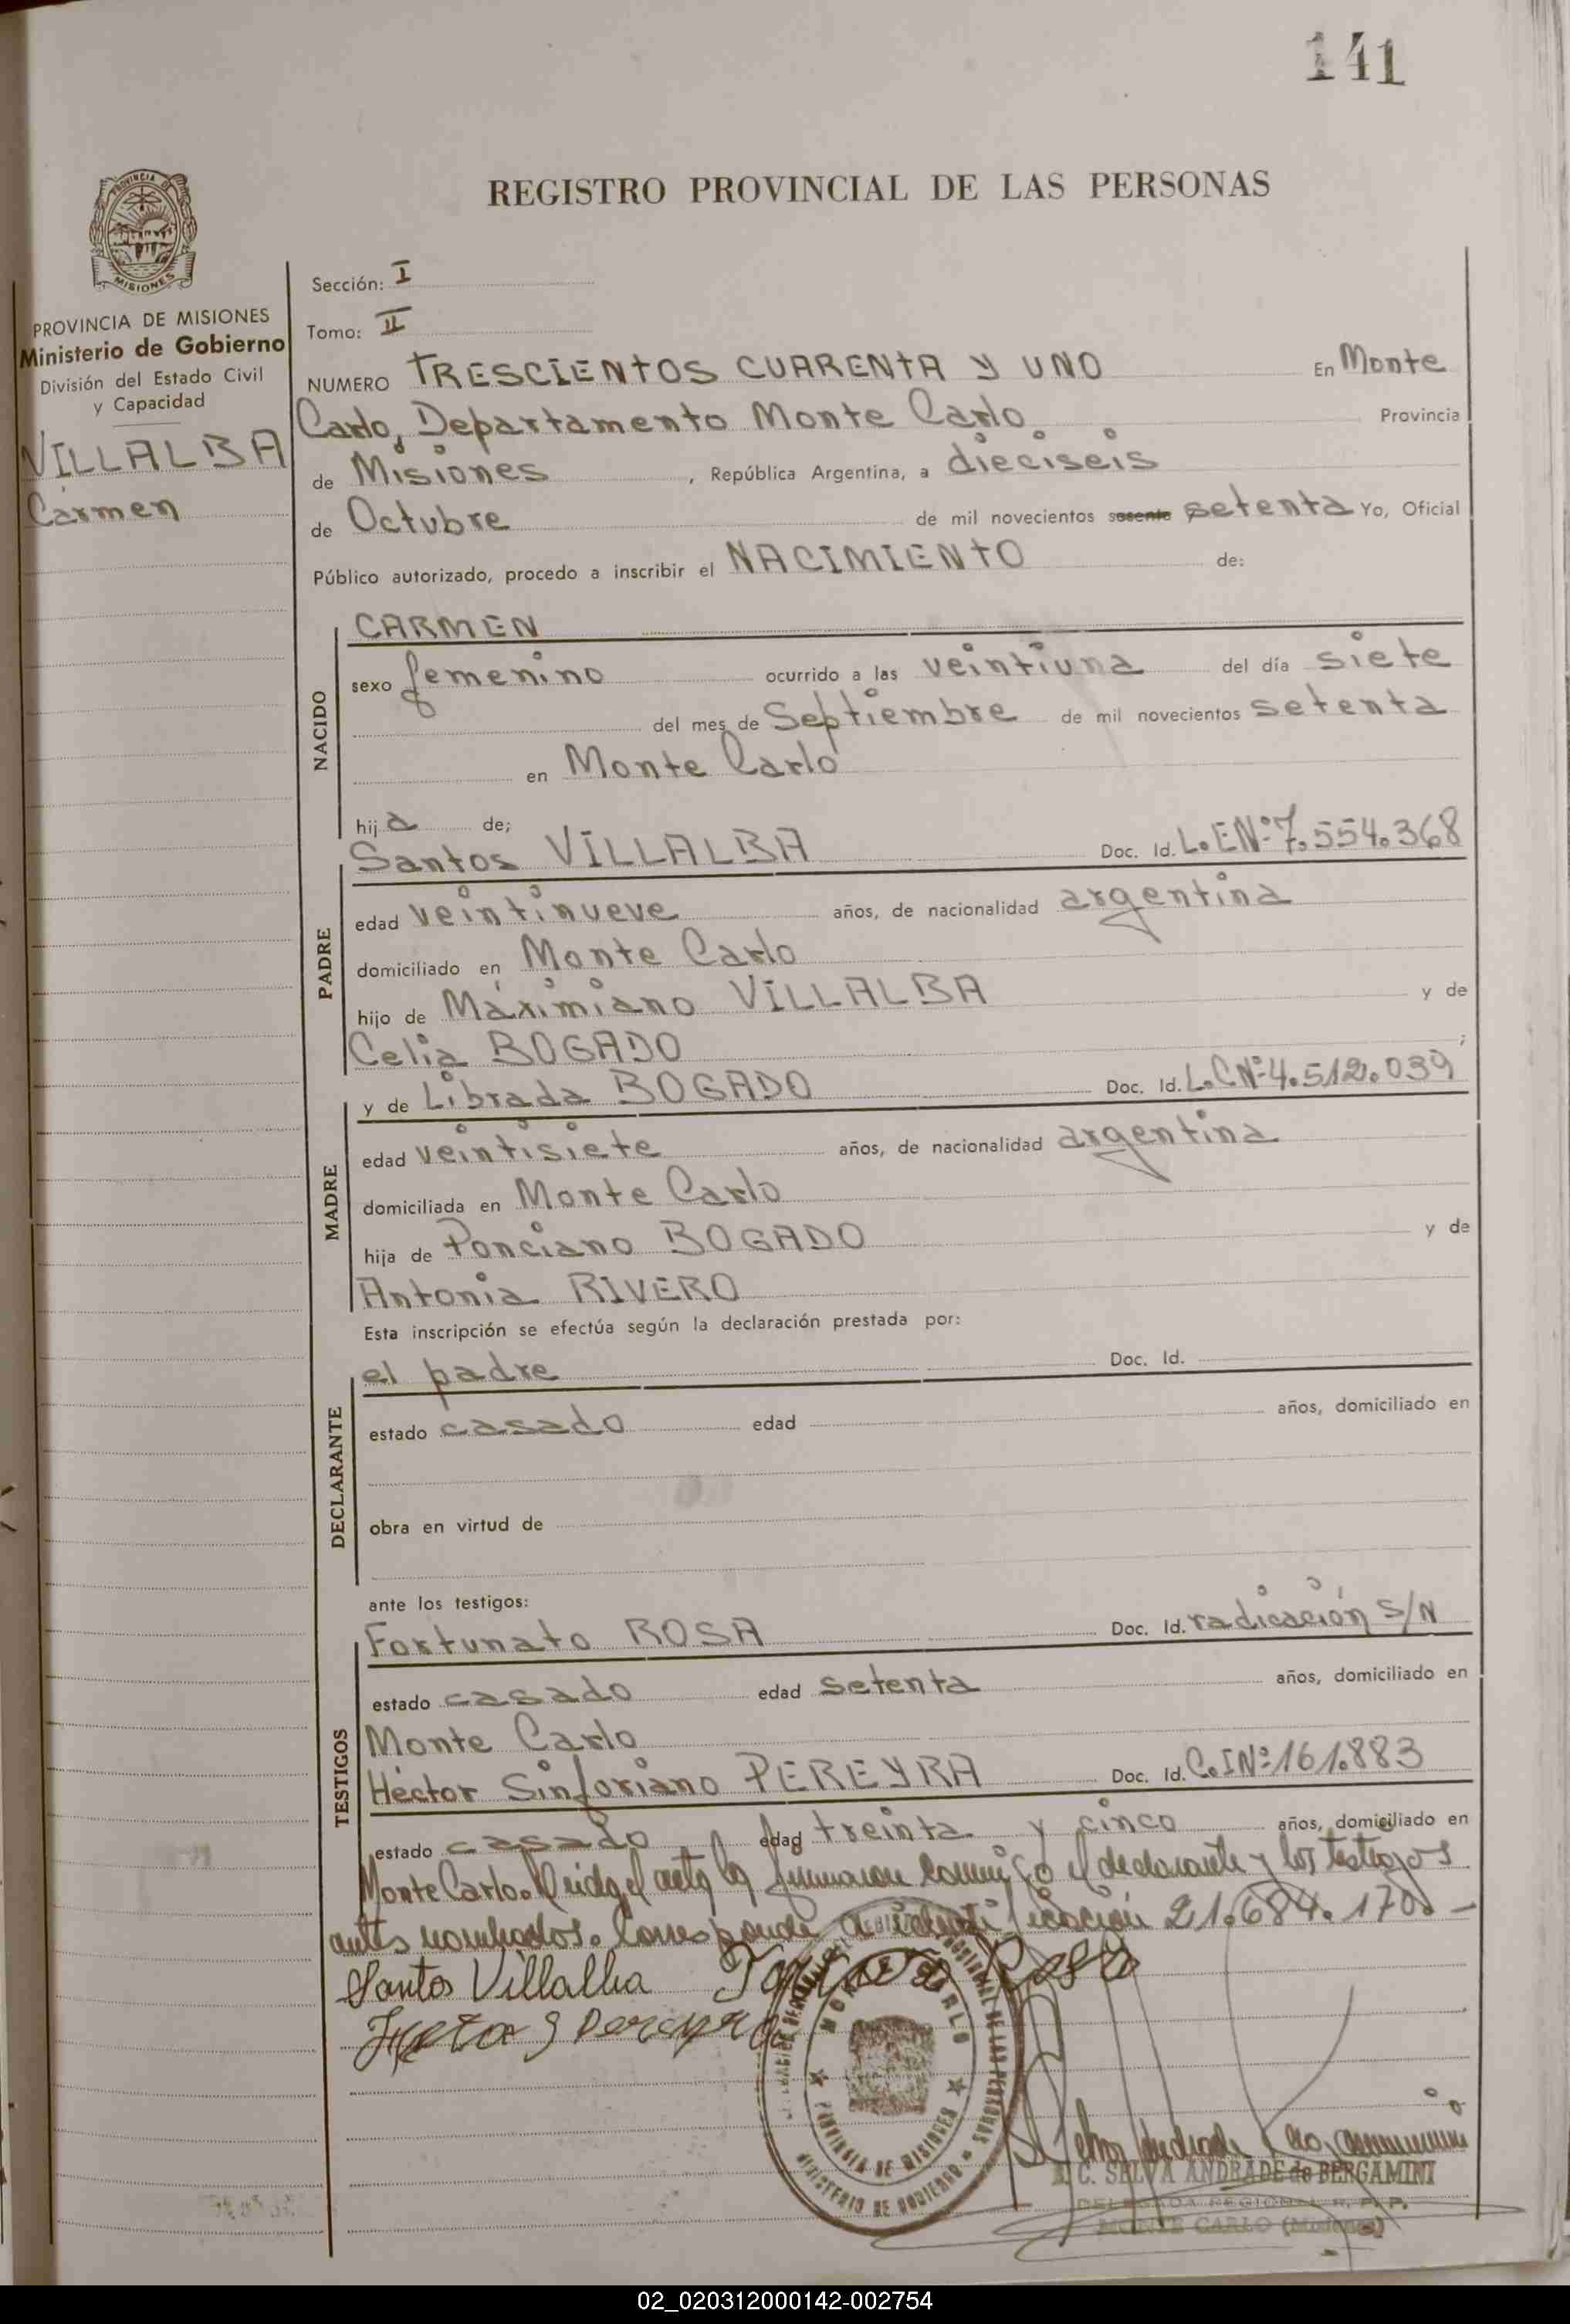 141
REGISTRO PROVINCIAL DE LAS PERSONAS
PROVINCIA DE MISIONES
Ministerio de Gobierno
División del Estado Civil
y Capacidad
VILLALBA
Carmen
Sección: I
Tomo: II
NUMERO TRESCIENTOS CUARENTA Y UNO En Monte
Carlo, Departamento Monte Carlo Provincia
de Misiones, República Argentina, a dieciseis
de Octubre de mil novecientos sesenta setenta Yo, Oficial
Público autorizado, procedo a inscribir el NACIMIENTO de:
NACIDO
CARMEN
sexo femenino ocurrido a las veintiuna del día siete
del mes de Septiembre de mil novecientos setenta
en Monte Carlo
hija de;
PADRE
Santos VILLALBA Doc. Id. L.E Nº 7.554.368
edad veintinueve años, de nacionalidad argentina
domiciliado en Monte Carlo
hijo de Máximiano VILLALBA y de
Celia BOGADO;
MADRE
y de Librada BOGADO Doc. Id. L.C Nº 4.512.039
edad veintisiete años, de nacionalidad argentina
domiciliada en Monte Carlo
hija de Ponciano BOGADO y de
Antonia RIVERO
Esta inscripción se efectúa según la declaración prestada por:
DECLARANTE
el padre Doc. Id.
estado casado edad años, domiciliado en
obra en virtud de
ante los testigos:
TESTIGOS
Fortunato ROSA Doc. Id. radicación S/N
estado casado edad setenta años, domiciliado en
Monte Carlo
Héctor Sinforiano PEREYRA Doc. Id. C.I Nº 161.883
estado casado edad treinta y cinco años, domiciliado en
Monte Carlo. Leida el acta la firmaron conmigo el declarante y los testigos
antes nombrados. Corresponde a identificación 21.684.170 -
Santos Villalba Rosa
Pereyra
MONTE CARLO
PROVINCIA DE MISIONES
MINISTERIO DE GOBIERNO
C. SELVA ANDRADE de BERGAMINI
DELEGADA REGIONAL R. P. P.
MONTE CARLO (Misiones)
02_020312000142-002754